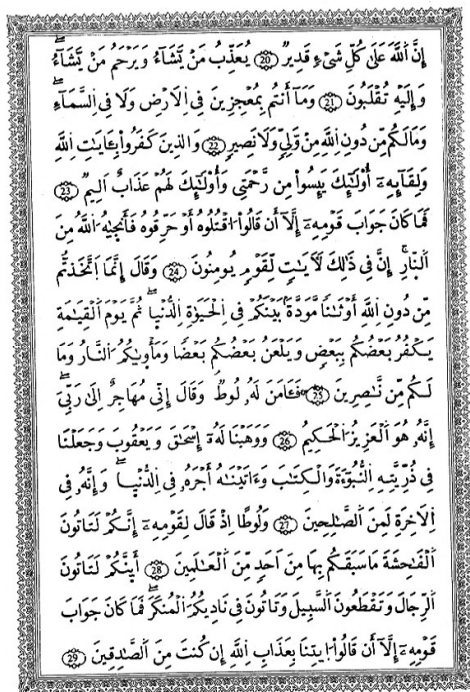 إِنَّ اَ۬للَّهَ عَلَىٰ كُلِّ شَےْءٖ قَدِيرٞ ۝20 يُعَذِّبُ مَنْ يَّشَآءُ وَيَرْحَمُ مَنْ يَّشَآءُۖ
وَإِلَيْهِ تُقْلَبُونَ ۝21 وَمَآ أَنتُم بِمُعْجِزِينَ فِے اِ۬لَارْضِ وَلَا فِے اِ۬لسَّمَآءِۖ
وَمَا لَكُم مِّن دُونِ اِ۬للَّهِ مِنْ وَّلِيّٖ وَلَا نَصِيرٖۖ ۝22 وَالذِينَ كَفَرُواْ بِـَٔايَٰتِ اِ۬للَّهِ
وَلِقَآئِهِۦٓ أُوْلَٰٓئِكَ يَئِسُواْ مِن رَّحْمَتِے وَأُوْلَٰٓئِكَ لَهُمْ عَذَابٌ اَلِيمٞۖ ۝23
فَمَا كَانَ جَوَابَ قَوْمِهِۦٓ إِلَّآ أَن قَالُواْ اُ۟قْتُلُوهُ أَوْ حَرِّقُوهُ فَأَنج۪ىٰهُ اُ۬للَّهُ مِنَ
اَ۬لنّ۪ارِۖ إِنَّ فِے ذَٰلِكَ لَأٓيَٰتٖ لِّقَوْمٖ يُومِنُونَ ۝24 وَقَالَ إِنَّمَا اَ۪تَّخَذتُّم
مِّن دُونِ اِ۬للَّهِ أَوْثَٰناٗ مَّوَدَّةَۢ بَيْنَكُمْ فِے اِ۬لْحَيَوٰةِ اِ۬لدُّنْي۪اۖ ثُمَّ يَوْمَ اَ۬لْقِيَٰمَةِ
يَكْفُرُ بَعْضُكُم بِبَعْضٖ وَيَلْعَنُ بَعْضُكُم بَعْضاٗ وَمَأْو۪يٰكُمُ اُ۬لنَّارُ وَمَا
لَكُم مِّن نَّٰصِرِينَۖ ۝25 فَـَٔامَنَ لَهُۥ لُوطٞۖ وَقَالَ إِنِّے مُهَاجِرٌ اِلَىٰ رَبِّيَۖ
إِنَّهُۥ هُوَ اَ۬لْعَزِيزُ اُ۬لْحَكِيمُۖ ۝26 وَوَهَبْنَا لَهُۥٓ إِسْحَٰقَ وَيَعْقُوبَ وَجَعَلْنَا
فِے ذُرِّيَّتِهِ اِ۬لنُّبُوٓءَةَ وَالْكِتَٰبَ وَءَاتَيْنَٰهُ أَجْرَهُۥ فِے اِ۬لدُّنْي۪اۖ وَإِنَّهُۥ فِے
اِ۬لَاخِرَةِ لَمِنَ اَ۬لصَّٰلِحِينَۖ ۝27 وَلُوطاً اِذْ قَالَ لِقَوْمِهِۦٓ إِنَّكُمْ لَتَاتُونَ
اَ۬لْفَٰحِشَةَ مَا سَبَقَكُم بِهَا مِنَ اَحَدٖ مِّنَ اَ۬لْعَٰلَمِينَۖ ۝28 أَئِنَّكُمْ لَتَاتُونَ
اَ۬لرِّجَالَ وَتَقْطَعُونَ اَ۬لسَّبِيلَ وَتَاتُونَ فِے نَادِيكُمُ اُ۬لْمُنكَرَۖ فَمَا كَانَ جَوَابَ
قَوْمِهِۦٓ إِلَّآ أَن قَالُواْ اُ۪يتِنَا بِعَذَابِ اِ۬للَّهِ إِن كُنتَ مِنَ اَ۬لصَّٰدِقِينَۖ ۝29